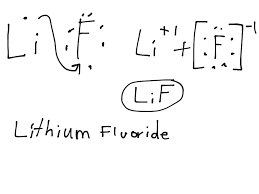 Li :F: Li+1 + [:F:]-1
LiF
Lithium Fluoride